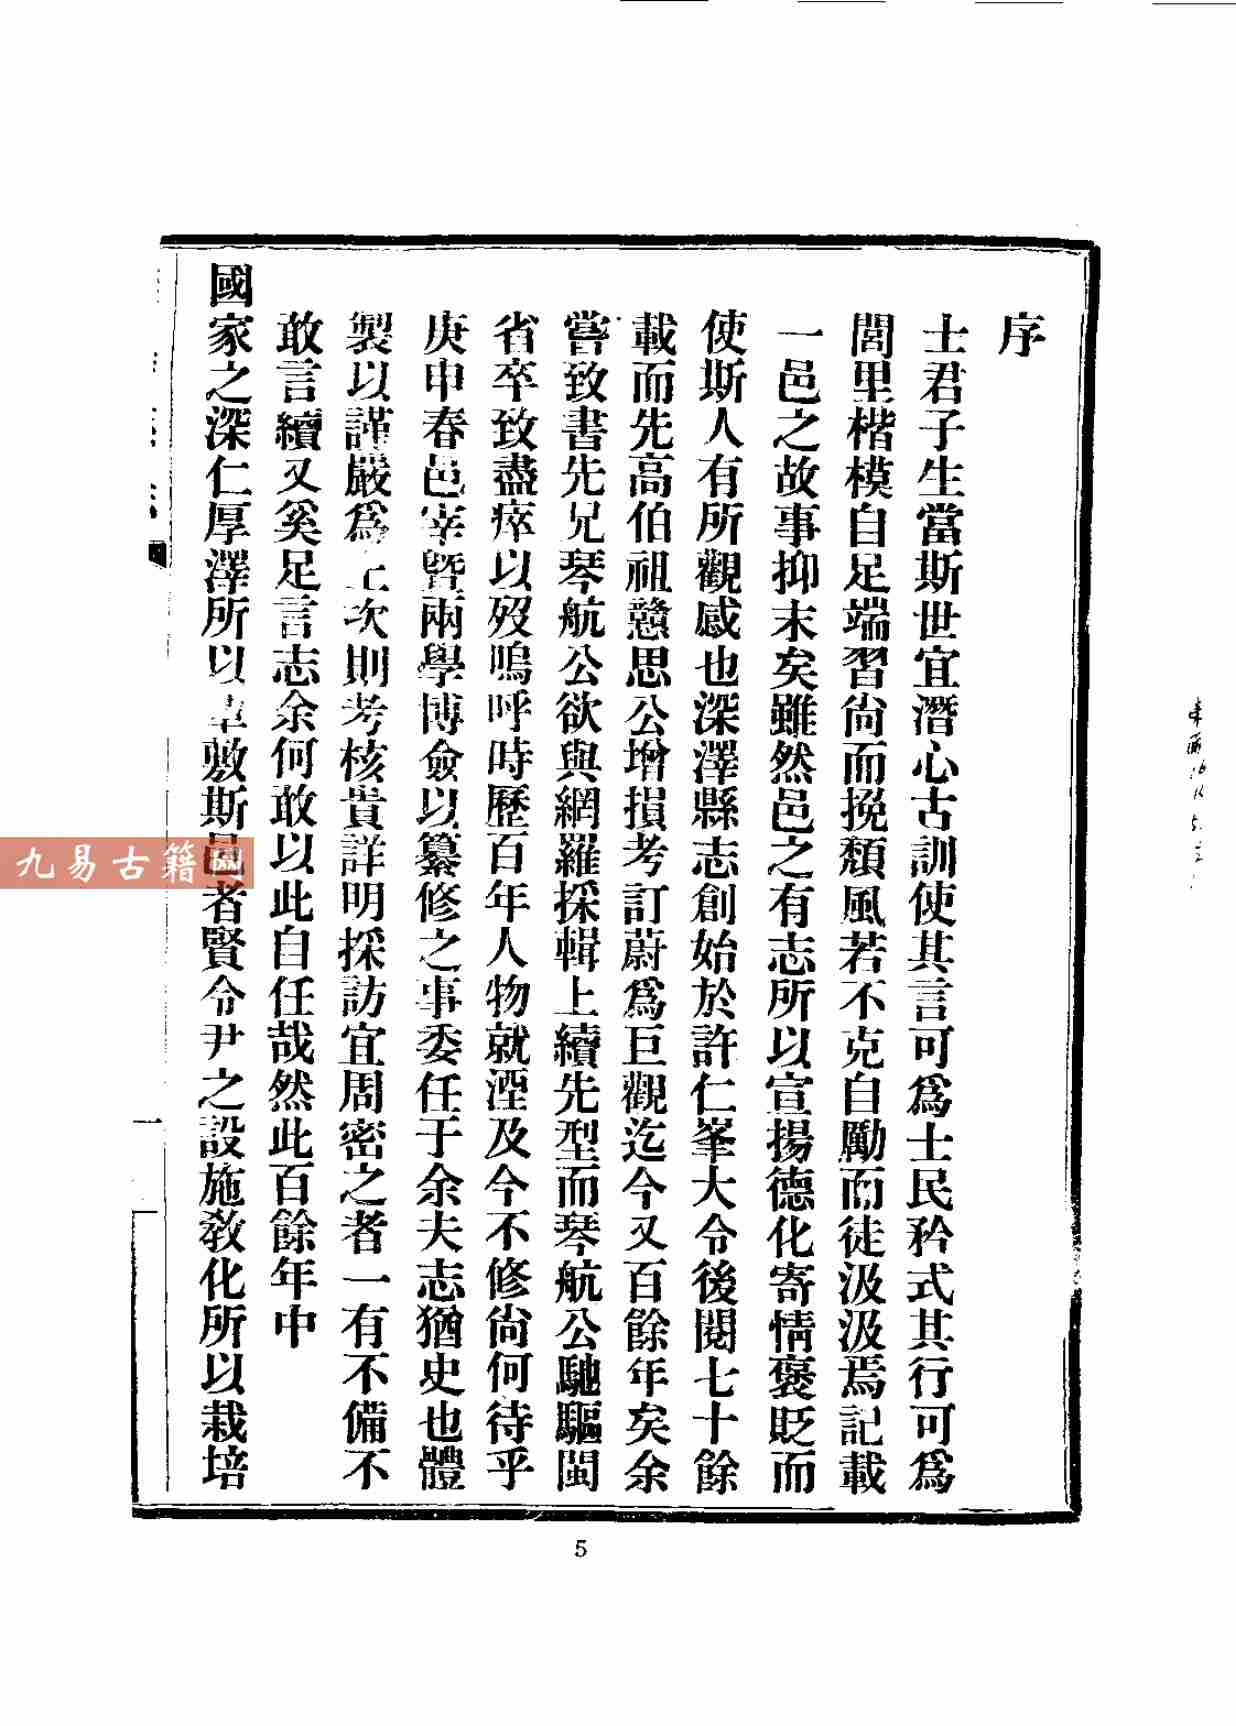 序
士君子生當斯世宜潛心古訓使其言可爲士民矜式其行可爲
閭里楷模自足端習尙而挽頹風若不克自勵而徒汲汲焉記載
一邑之故事抑末矣雖然邑之有志所以宣揚德化寄情褒貶而
使斯人有所觀感也深澤縣志創始於許仁峯大令後閱七十餘
載而先高伯祖戇思公增損考訂蔚爲巨觀迄今又百餘年矣余
嘗致書先兄琴航公欲與網羅採輯上續先型而琴航公馳驅閩
省卒致盡瘁以歿嗚呼時歷百年人物就湮及今不修尙何待乎
庚申春邑宰曁兩學博僉以纂修之事委任于余夫志猶史也體
製以謹嚴爲上次則考核貴詳明採訪宜周密之者一有不備不
敢言續又奚足言志余何敢以此自任哉然此百餘年中
國家之深仁厚澤所以覃敷斯邑者賢令尹之設施敎化所以栽培
一
5
九易古籍网